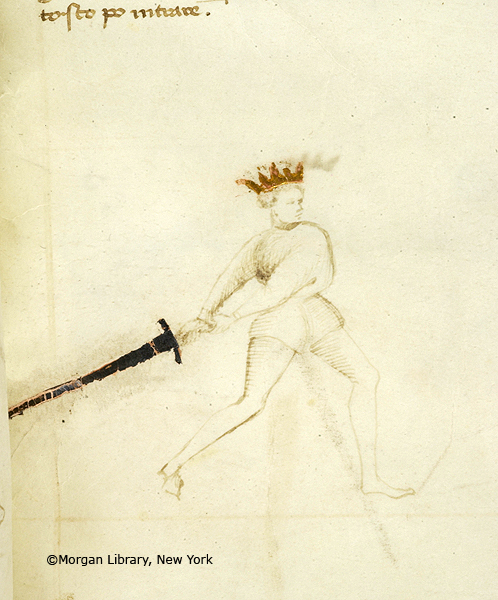 tosto po intrare.
©Morgan Library, New York